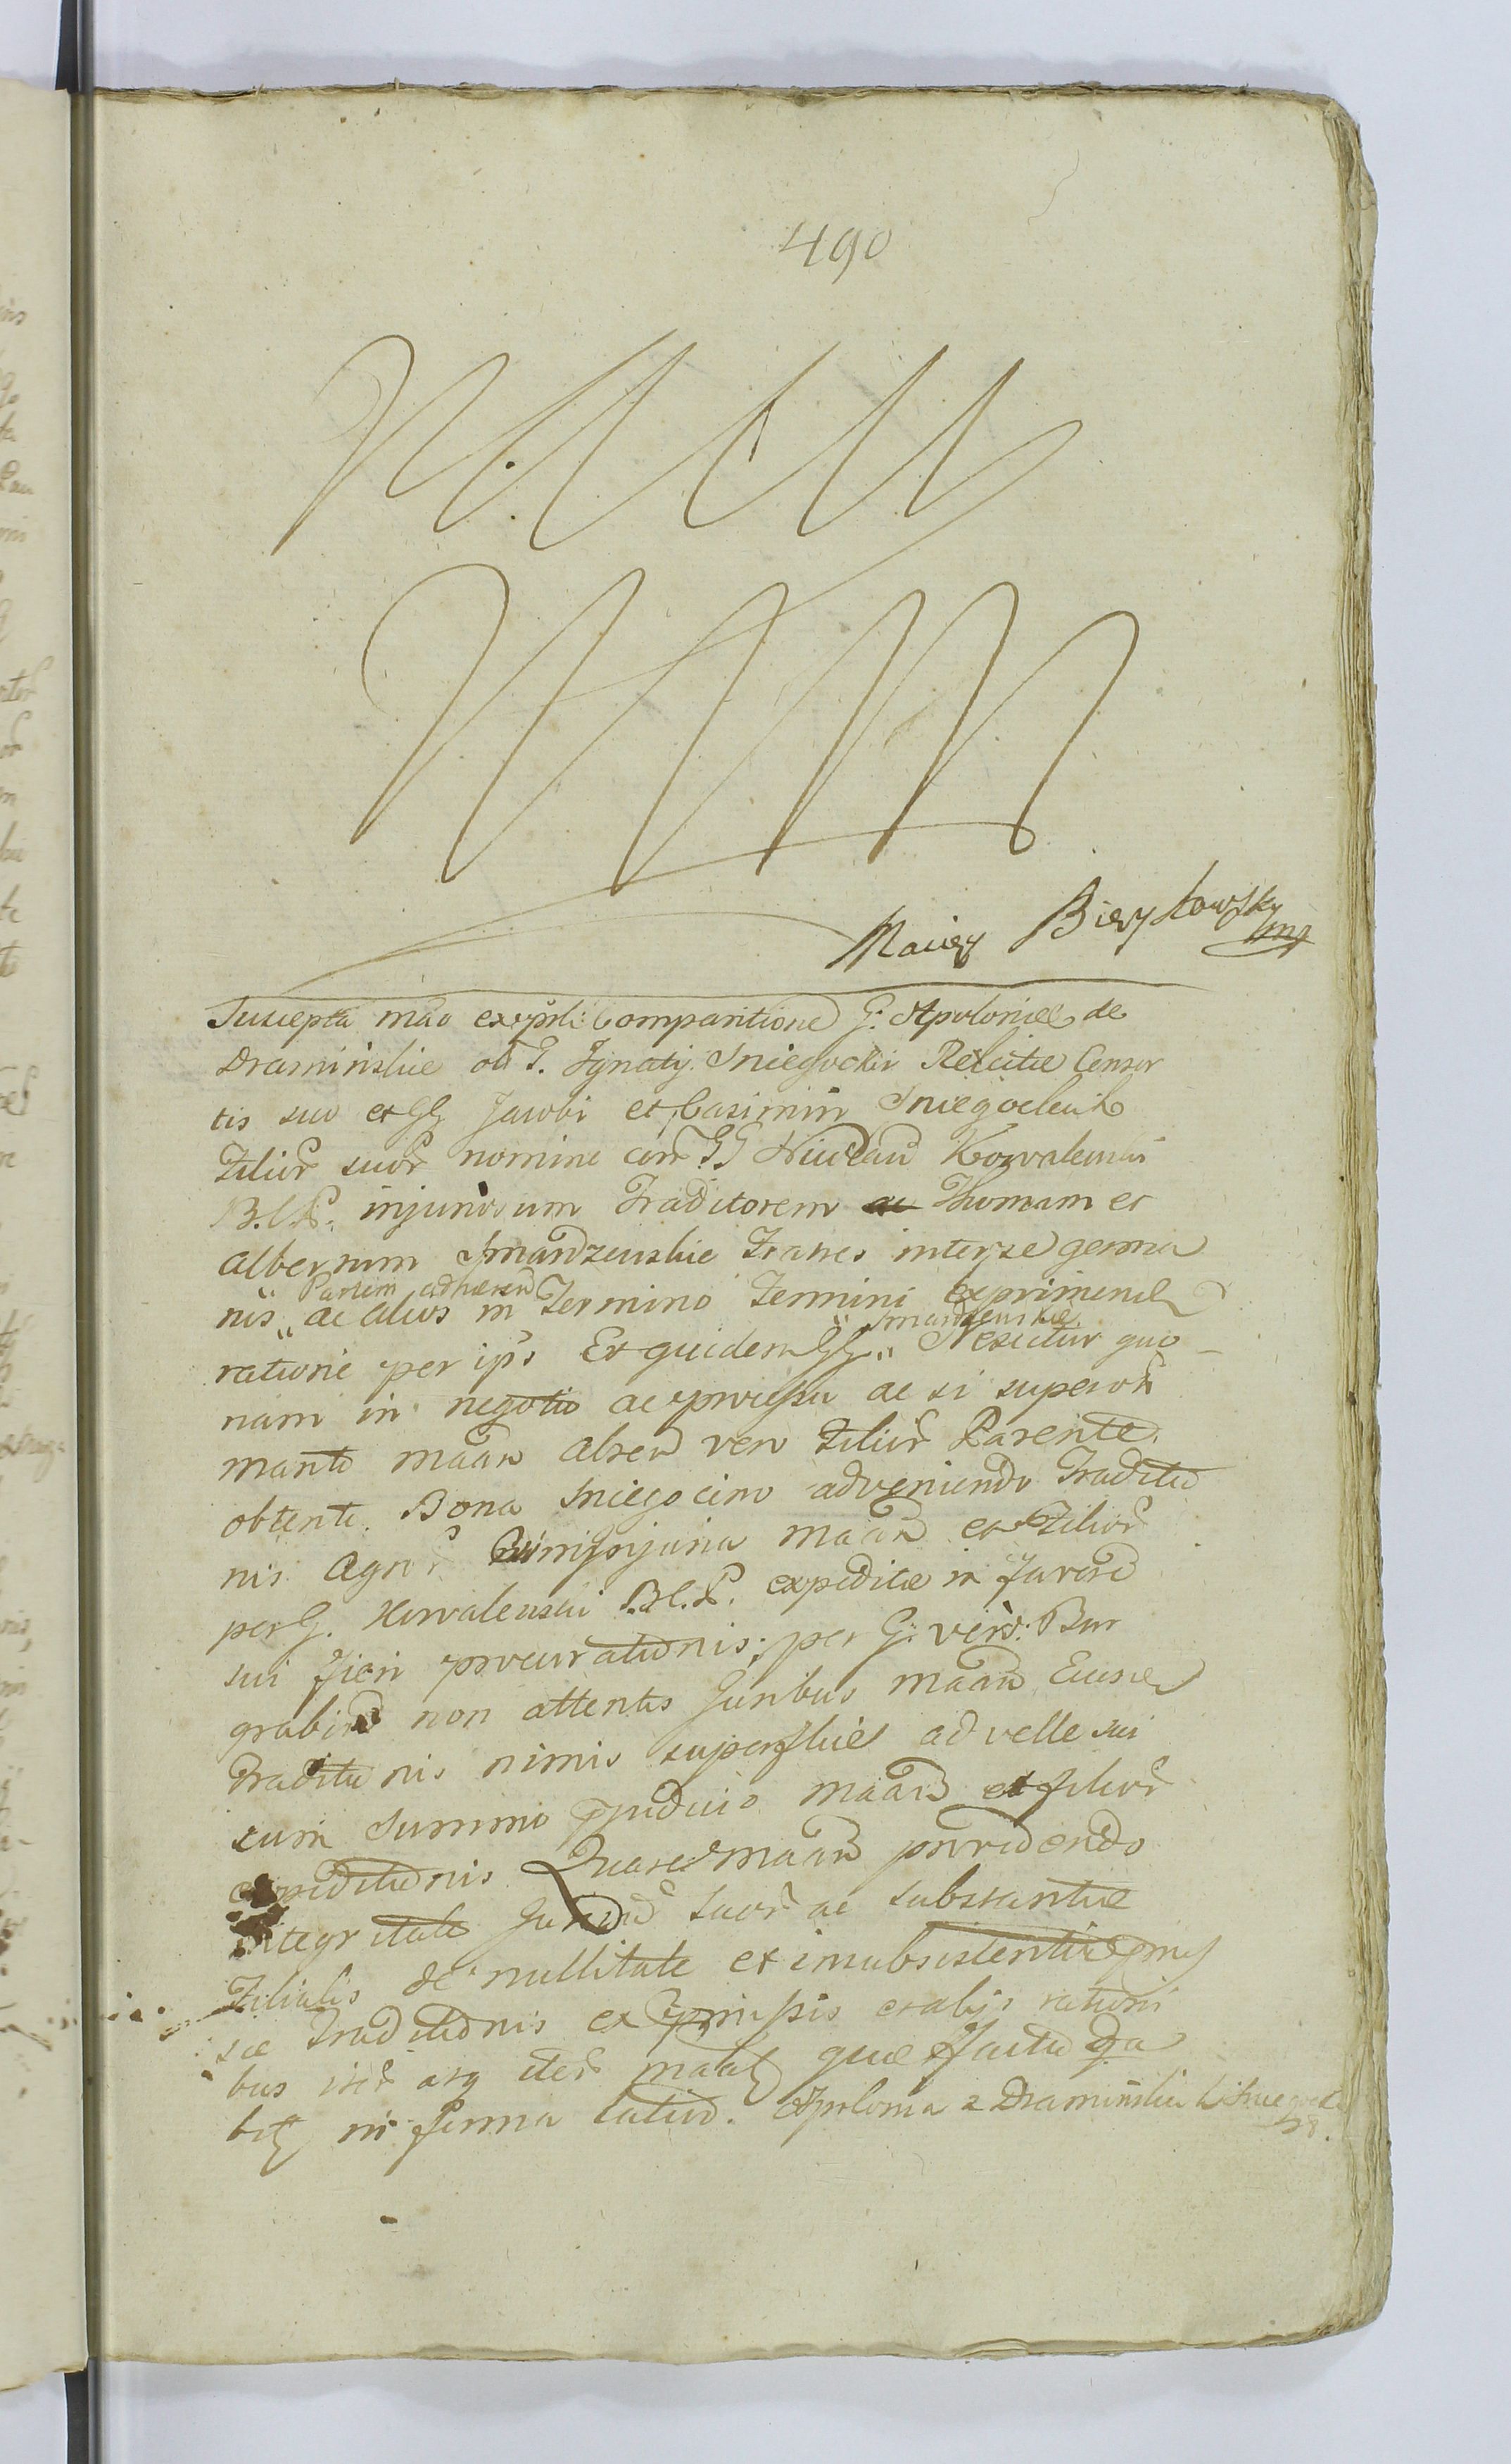 490
Maciey Bieykowsky
mp
Suscepta mão ex psli: Comparitione G: Apoloniæ de
Draminskie olĩ G. Ignatij Sniegocki Relictæ Consor
tis suo et GG Jacobi et Casimiri Sniegockich
Filior suor nomine con GG Nicolaũ Kowalewski
B.C.P. injuriosum Traditorem Thomam et
Albertum Smardzewskie Fratres inter se germa
nis „ ac alios in Termino Termini exprimend
Partem adhæren
ratione per ips Et quidem GG „ Nescitur quo
Smardzewskie
nam in negotio ac processu ac si superor
manti maan absen vero Filior Parente.
obtente. Bona Sniegocino adveniendo Traditio
nis Agror injuria maan et Filior
per G. Kowalewski B.C.P. expeditæ in favore
sui fieri procurationis; per G: vero: Bur
grabiũ non attentis Juribus maan Eiusce
Traditionis nimis superflue ad velle sui
cum Summo pjudicio maan et filior
expeditionis Quare maan providendo
integritate Jurium suor ac substantiæ
Filialis de nullitate et insubsistentia pmis
sæ Traditionis ex pmissis et alijs rationi
bus iter atq iter maatq quæ Facto
in forma latior. Apolonia z Draminskich Sniegocka